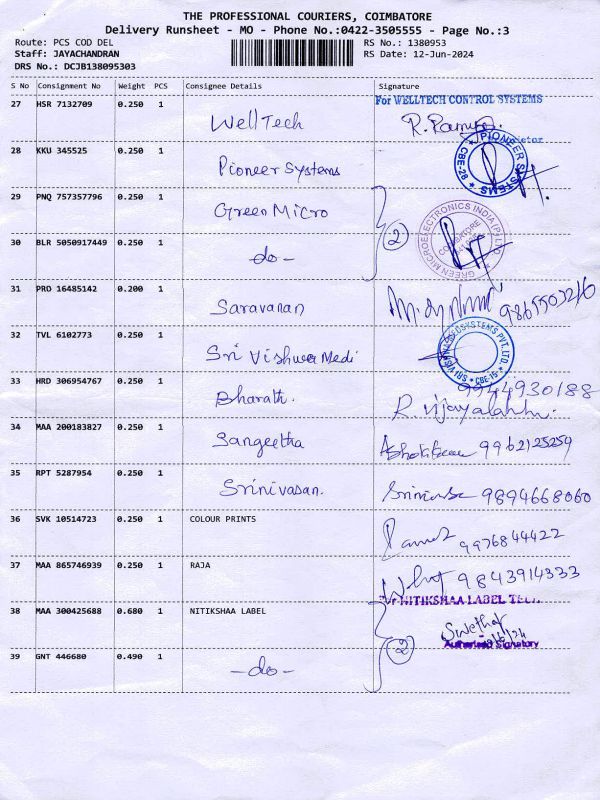 THE PROFESSIONAL COURIERS, COIMBATORE
Delivery Runsheet - MO - Phone No.:0422-3505555 - Page No.:3
Route: PCS COD DEL RS No.: 1380953
Staff: JAYACHANDRAN RS Date: 12-Jun-2024
DRS No.: DCJB138095303
S No Consignment No Weight PCS Consignee Details Signature
27 HSR 7132709 0.250 1 WellTech For WELLTECH CONTROL SYSTEMS
28 KKU 345525 0.250 1 Pioneer Systems PIONEER SYSTEMS CBE-28
29 PNQ 757357796 0.250 1 Green Micro
30 BLR 5050917449 0.250 1 -do- 2 GREEN MICROELECTRONICS INDIA (P) LTD COIMBATORE
31 PRO 16485142 0.200 1 Saravanan 9865503216
32 TVL 6102773 0.250 1 Sri Vishwa Medi CBE-15
33 HRD 306954767 0.250 1 Bharath. 9944930188
R. Vijayalakshmi
34 MAA 200183827 0.250 1 Sangeetha 9962125259
35 RPT 5287954 0.250 1 Srinivasan. 9894668060
36 SVK 10514723 0.250 1 COLOUR PRINTS 9976844422
37 MAA 865746939 0.250 1 RAJA 9843914333
For NITIKSHAA LABEL TECH
38 MAA 300425688 0.680 1 NITIKSHAA LABEL Swetha
2 Authorised Signatory
39 GNT 446680 0.490 1 -do-